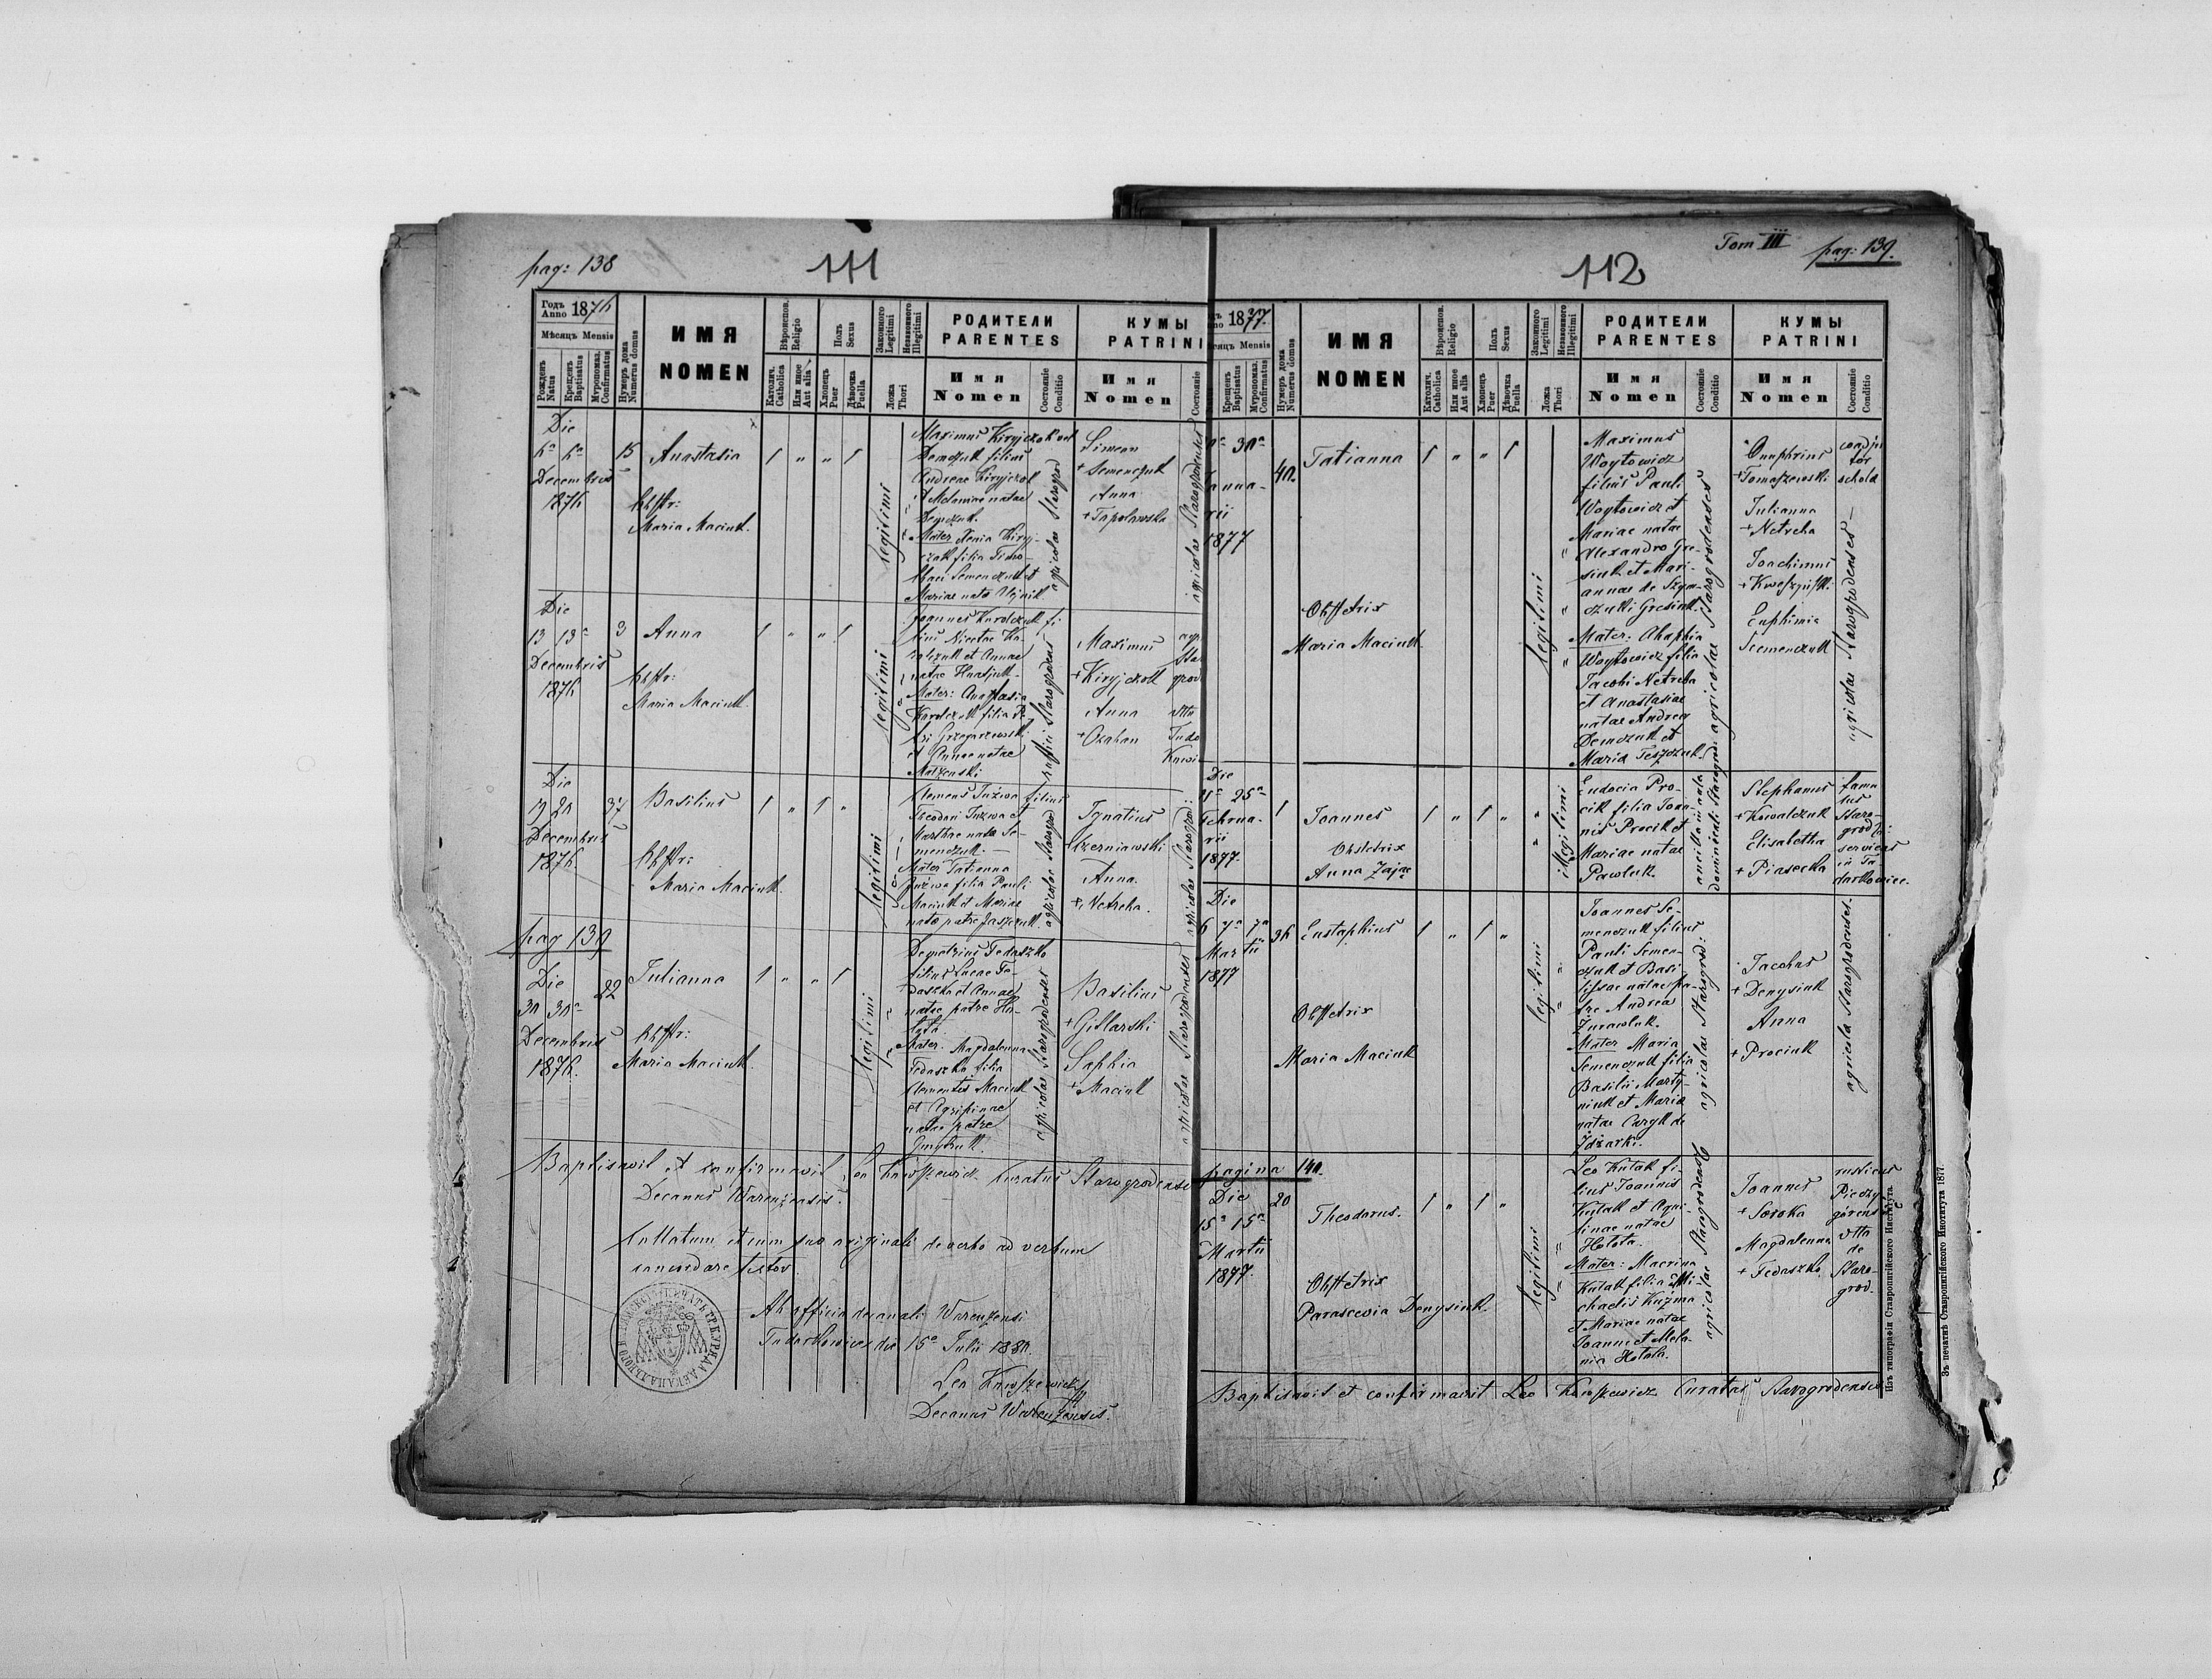 pag: 138
111
Годъ Anno 1876
Мѣсяцъ Mensis
Рожденъ Natus
Крещенъ Baptisatus
Муропомаз. Confirmatus
Нумеръ дома Numerus domus
ИМЯ
NOMEN
Вѣроиспов. Religio
Католич. Catholica
Или иное Aut alia
Полъ Sexus
Хлопецъ Puer
Дѣвочка Puella
Законного Legitimi
Незаконного Illegitimi
Ложа Thori
РОДИТЕЛИ
PARENTES
Имя
Nomen
Состояніе Conditio
КУМЫ
PATRINI
Имя
Nomen
Состояніе
Die
6a 6a
Decembris
1876
15
Anastasia
Obstr:
Maria Maciuk.
1 " " 1
legitimi
Maximus Kiryjczok vel
Demczuk filius
Andreae Kiryjczok
et Melaniae natae
Demczuk.
Mater Xenia Kiryj-
czok filia Timo-
thaei Semenczuk et
Mariae nata Olijnik
agricolae Starogrod
Simeon
+ Semenczuk
Anna
+ Tapolawska
agricolae Starogrodenses
Die
13 13a
Decembris
1876
3
Anna
Obstr:
Maria Maciuk.
1 " " 1
legitimi
Joannes Korolczuk fi-
lius Nicetae Ko-
rolczuk et Annae
natae Hnatjuk.
Mater: Anastasia
Korolczuk filia
Grzegorzewski
et Annae natae
Starogrodens
Maximus
+ Kiryjczok
Anna
+ Czaban
agri
Sta
grod
vtta
Tudo
Kowi
Die
19 20
Decembris
1876
37
Basilius
Obstr:
Maria Maciuk.
1 " 1 "
legitimi
Clemens Juzwa filius
Theodori Juzwa et
Marthae nata Se-
menczuk.
Mater Tatianna
Juzwa filia Pauli
Maciuk et Mariae
nata patre Jaszczuk.
agricolae Starogrod
Ignatius
+ Czerniawski
Anna
+ Netreba.
agricolae Starogrod:
pag 139
Die
30 30a
Decembris
1876.
22
Julianna
Obstr:
Maria Maciuk.
1 " " 1
legitimi
Demetrius Fedaszko
filius Lucae Fe-
daszko et Annae
natae patre Ho-
lota.
Mater. Magdalenna
Fedaszko filia
Clementis Maciuk
et Agripinae
natae patre
agricolae Starogrodenses
Basilius
+ Gitlarski
Sophia
+ Maciuk
agricolae Starogrodenses
Baptisavit et confirmavit Leo Kuroszewicz Curatus Starogrodensis
Decanus Warenzensis.
Collatum et cum suo originali de verbo ad verbum
concordare testor.
Ab officio decanali Warenzensi
Tudorkowice die 15a Julii 1880.
Leo Kuroszewicz
Decanus Warenzensis.
Tom III pag: 139.
112
1877.
Мѣсяцъ Mensis
Крещенъ Baptisatus
Муропомаз. Confirmatus
Нумеръ дома Numerus domus
ИМЯ
NOMEN
Вѣроиспов. Religio
Католич. Catholica
Или иное Aut alia
Полъ Sexus
Хлопецъ Puer
Дѣвочка Puella
Законного Legitimi
Незаконного Illegitimi
Ложа Thori
РОДИТЕЛИ
PARENTES
Имя
Nomen
Состояніе Conditio
КУМЫ
PATRINI
Имя
Nomen
Состояніе Conditio
30a
Janua-
rii
1877
40.
Tatianna
Obstetrix
Maria Maciuk.
1 " " 1
legitimi
Maximus
Woytowicz
filius Pauli
Woytowicz et
Mariae natae
Alexandro Gre-
siuk et Mari-
annae de Szym-
czuki Gresiuk.
Mater: Ahaphia
Woytowicz filia
Jacobi Netreba
et Anastasiae
natae Andrea
Demczuk et
Maria Feszczuk.
agricolae Starogrodenses
Onuphrius
+ Tomaszewski
Julianna
+ Netreba
Joachimus
Euphimia
Semenczuk
coadju
tor
schola
agricolae Starogrodenses
Die
25a
Februa-
rii
1877.
1
Joannes
Obstetrix
Anna Zając
1 " 1 "
illegitimi
Eudocia Pro-
cik filia Joan-
nis Procik et
Mariae natae
Pawluk.
ancilla in aula
dominicali Starogrod:
Stephanus
+ Kowalczuk
Elisabetha
+ Piasecka
famu
lus
Staro-
grod
serviens
in Tu-
dorkowice.
Die
6 7a 7a
Martii
1877
36
Eustaphius
Obstetrix
Maria Maciuk
1 " 1 "
legitimi
Joannes Se-
menczuk filius
Pauli Semen-
czuk et Basi-
lissae natae pa-
tre Andrea
Zurawluk.
Mater Maria
Semenczuk filia
Basilii Marty-
niuk et Maria
natae Caryk de
Zdżarki.
agricolae Starogrod:
Jacobus
+ Denysiuk
Anna
+ Prociuk
agricola Starogrodenses.
pagina 140.
Die
15a 15a
Martii
1877.
20
Theodorus.
Obstetrix
Parascewia Denysiuk.
1 " 1 "
legitimi
Leo Kutak fi-
lius Joannis
Kutak et Agri-
pinae natae
Holota.
Mater: Macrina
Kutak filia Mi-
chaelis Kuzma
et Mariae natae
Joanne et Mela-
nia Holota.
agricolae Starogrodenses
Joannes
+ Soroka
Magdalenna
+ Fedaszko
rusticus
Pieczy-
górens
vtta
de
Staro-
grod.
Baptisavit et confirmavit Leo Kuroszewicz Curatus Starogrodensis
Изъ типографіи Ставропигійского Института.
Зъ печатнѣ Ставропигійского Института 1877.